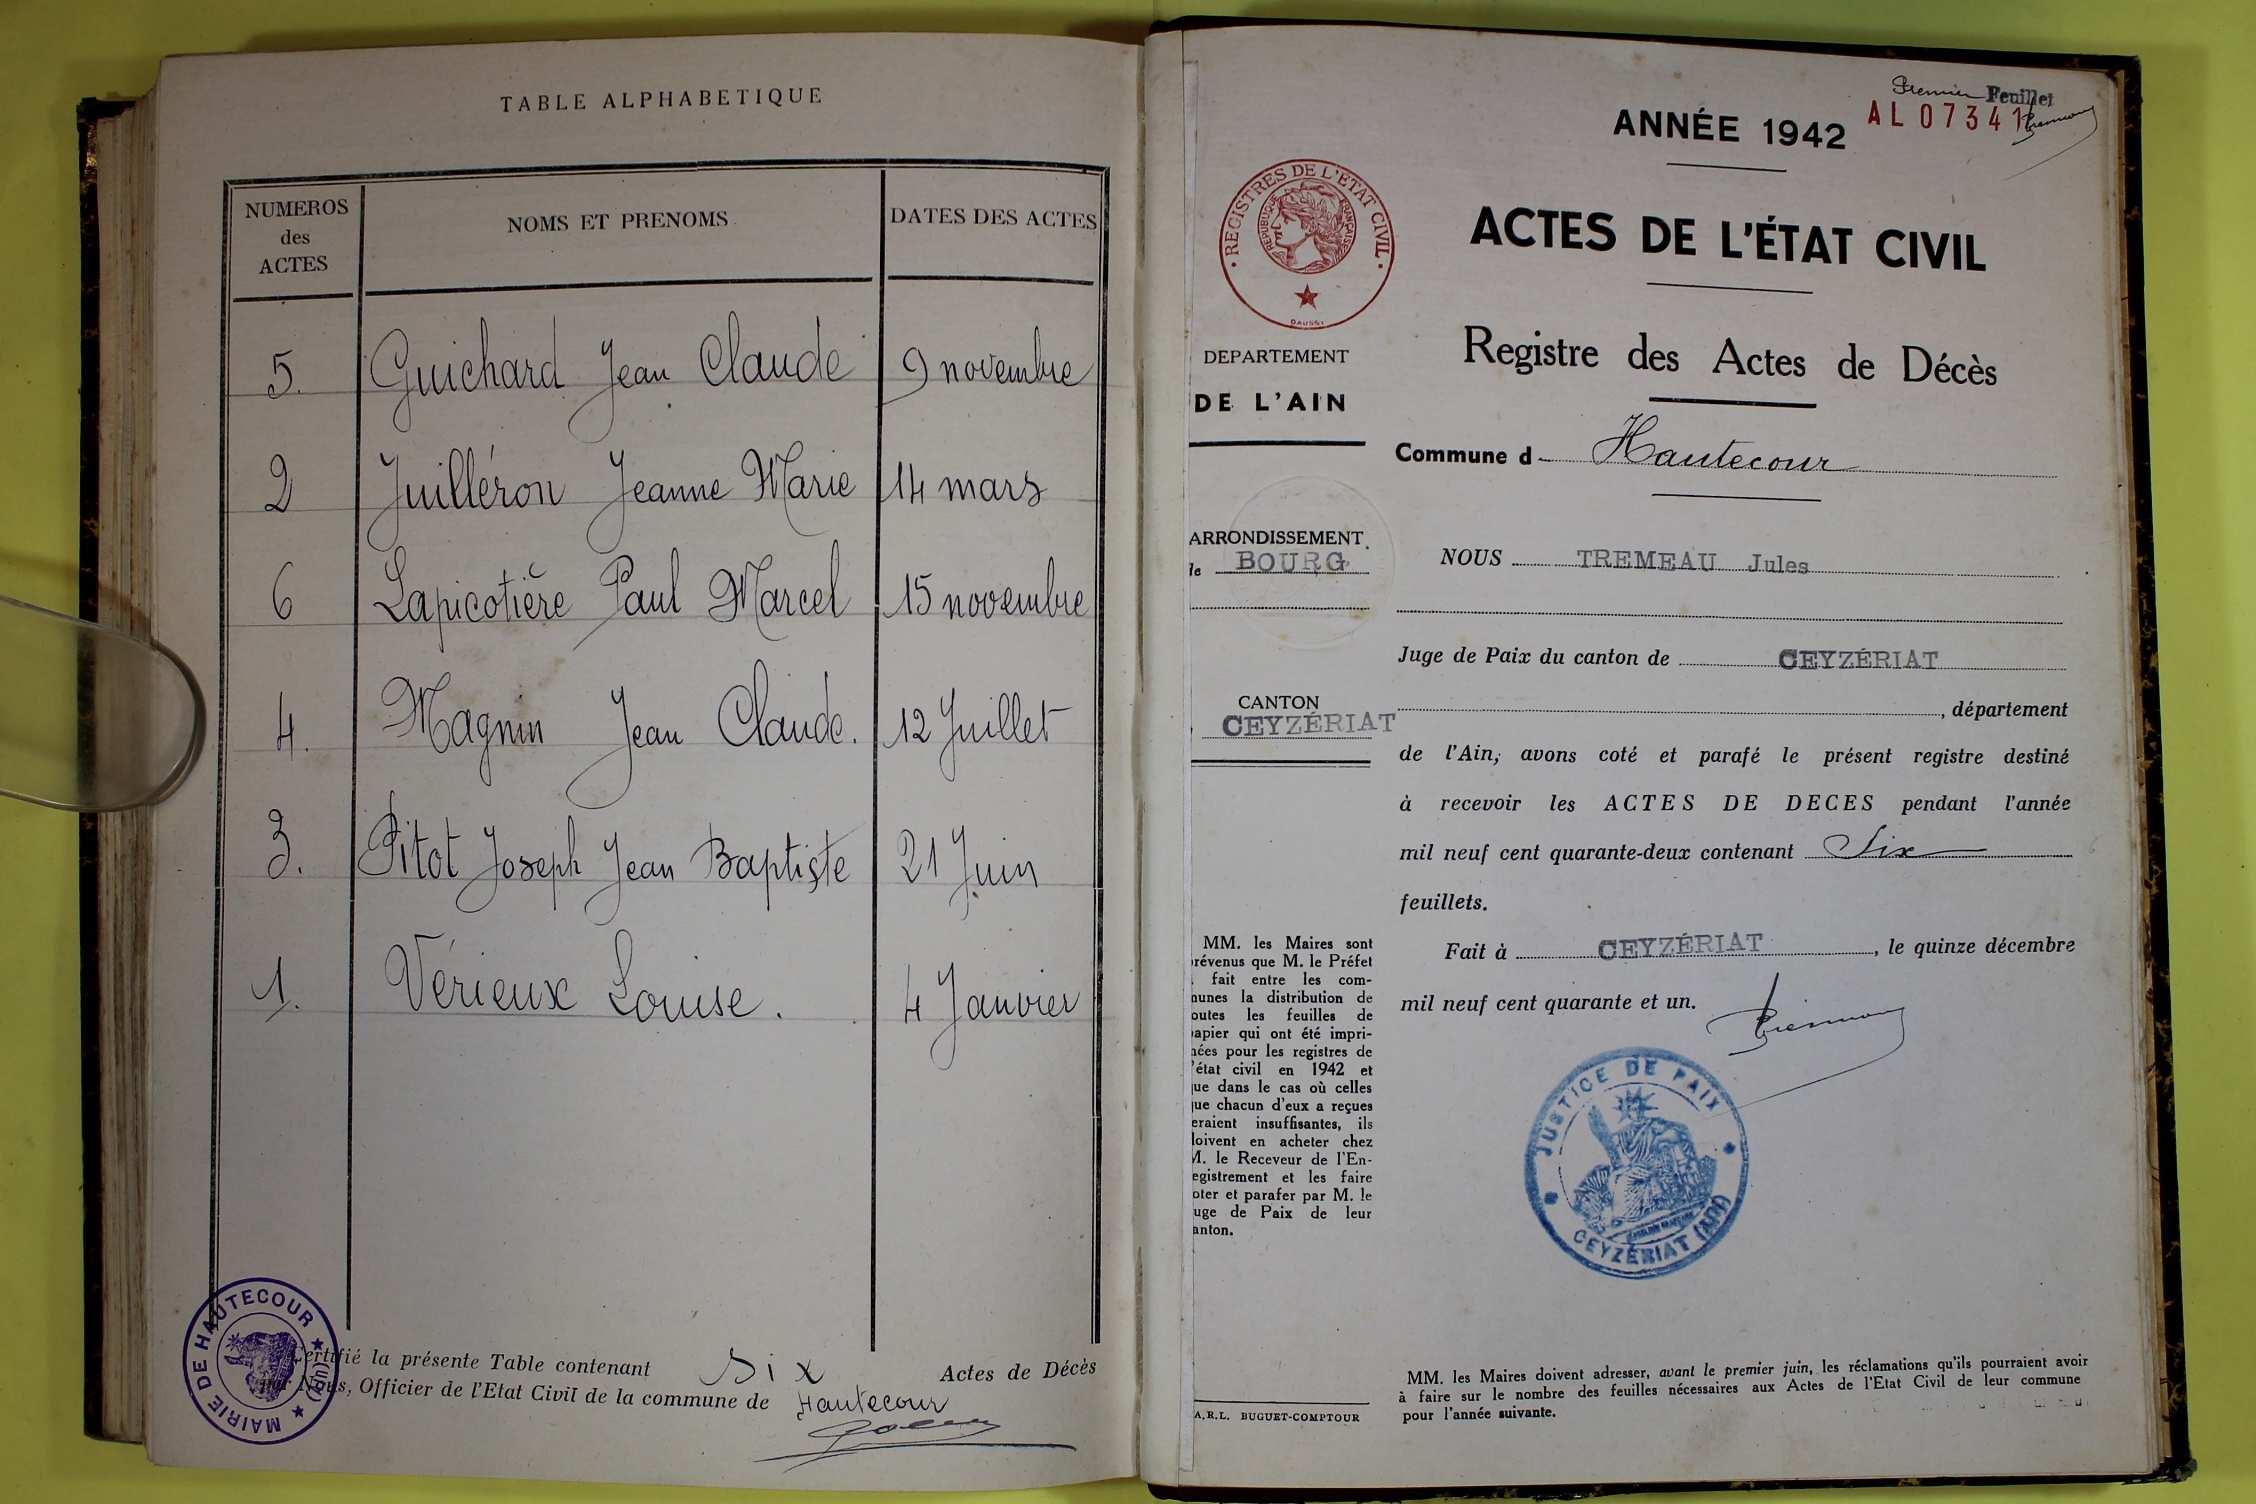 TABLE ALPHABETIQUE
NUMEROS des ACTES
NOMS ET PRENOMS
DATES DES ACTES
5. Guichard Jean Claude 9 novembre
2 Juilléron Jeanne Marie 14 mars
6 Lapicotière Paul Marcel 15 novembre
4. Magnin Jean Claude. 12 Juillet
3. Pitot Joseph Jean Baptiste 21 Juin
1. Vérieux Louise. 4 Janvier
Certifié la présente Table contenant six Actes de Décès
par Nous, Officier de l'Etat Civil de la commune de Hautecour
MAIRIE DE HAUTECOUR ★ (AIN) ★
Premier Feuillet
AL 07341
ANNÉE 1942
ACTES DE L'ÉTAT CIVIL
Registre des Actes de Décès
Commune d Hautecour
NOUS TREMEAU Jules
Juge de Paix du canton de CEYZÉRIAT
, département
de l'Ain, avons coté et parafé le présent registre destiné
à recevoir les ACTES DE DECES pendant l'année
mil neuf cent quarante-deux contenant Six
feuillets.
Fait à CEYZÉRIAT, le quinze décembre
mil neuf cent quarante et un.
JUSTICE DE PAIX
CEYZÉRIAT (AIN)
MM. les Maires doivent adresser, avant le premier juin, les réclamations qu'ils pourraient avoir
à faire sur le nombre des feuilles nécessaires aux Actes de l'Etat Civil de leur commune
pour l'année suivante.
• REGISTRES DE L'ETAT CIVIL •
REPUBLIQUE FRANÇAISE
DAUSSY
DEPARTEMENT
DE L'AIN
ARRONDISSEMENT
de BOURG
CANTON
CEYZÉRIAT
MM. les Maires sont
révenus que M. le Préfet
fait entre les com-
munes la distribution de
outes les feuilles de
apier qui ont été impri-
ées pour les registres de
'état civil en 1942 et
ue dans le cas où celles
ue chacun d'eux a reçues
eraient insuffisantes, ils
oivent en acheter chez
M. le Receveur de l'En-
egistrement et les faire
oter et parafer par M. le
uge de Paix de leur
anton.
A.R.L. BUGUET-COMPTOUR